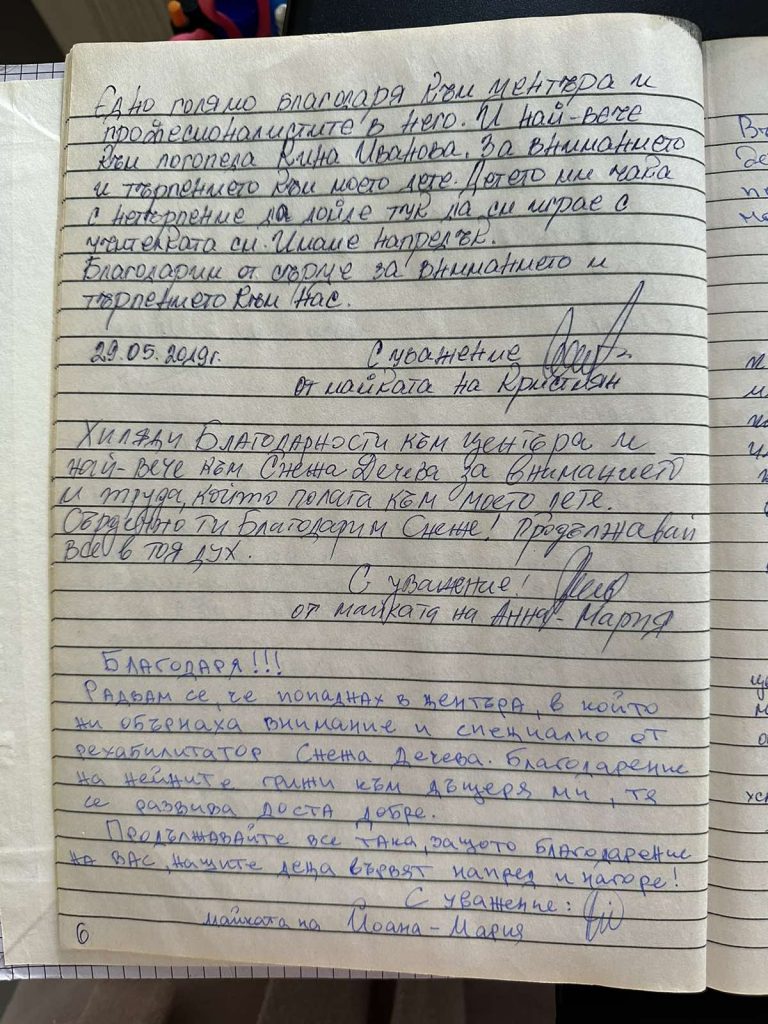 Едно голямо благодаря към центъра и
професионалистите в него. И най-вече
към логопеда Кина Иванова. За вниманието
и търпението към моето дете. Детето ми чака
с нетърпение да дойде тук да си играе с
учителката си. Имаме напредък.
Благодарим от сърце за вниманието и
търпението към нас.
29.05.2019г. С уважение
от майката на Кристиян
Хиляди Благодарности към центъра и
най-вече към Снежа Дечева за вниманието
и труда, който полага към моето дете.
Сърдечно ти Благодарим Снеже! Продължавай
все в тоя дух.
С уважение!
от майката на Анна-Мария
Благодаря!!!
Радвам се, че попаднах в центъра, в който
ми обърнаха внимание и специално от
рехабилитатор Снежа Дечева. Благодарение
на нейните грижи към дъщеря ми, тя
се развива доста добре.
Продължавайте все така, защото благодарение
на ВАС, нашите деца вървят напред и нагоре!
С уважение:
майката на Йоана-Мария
6